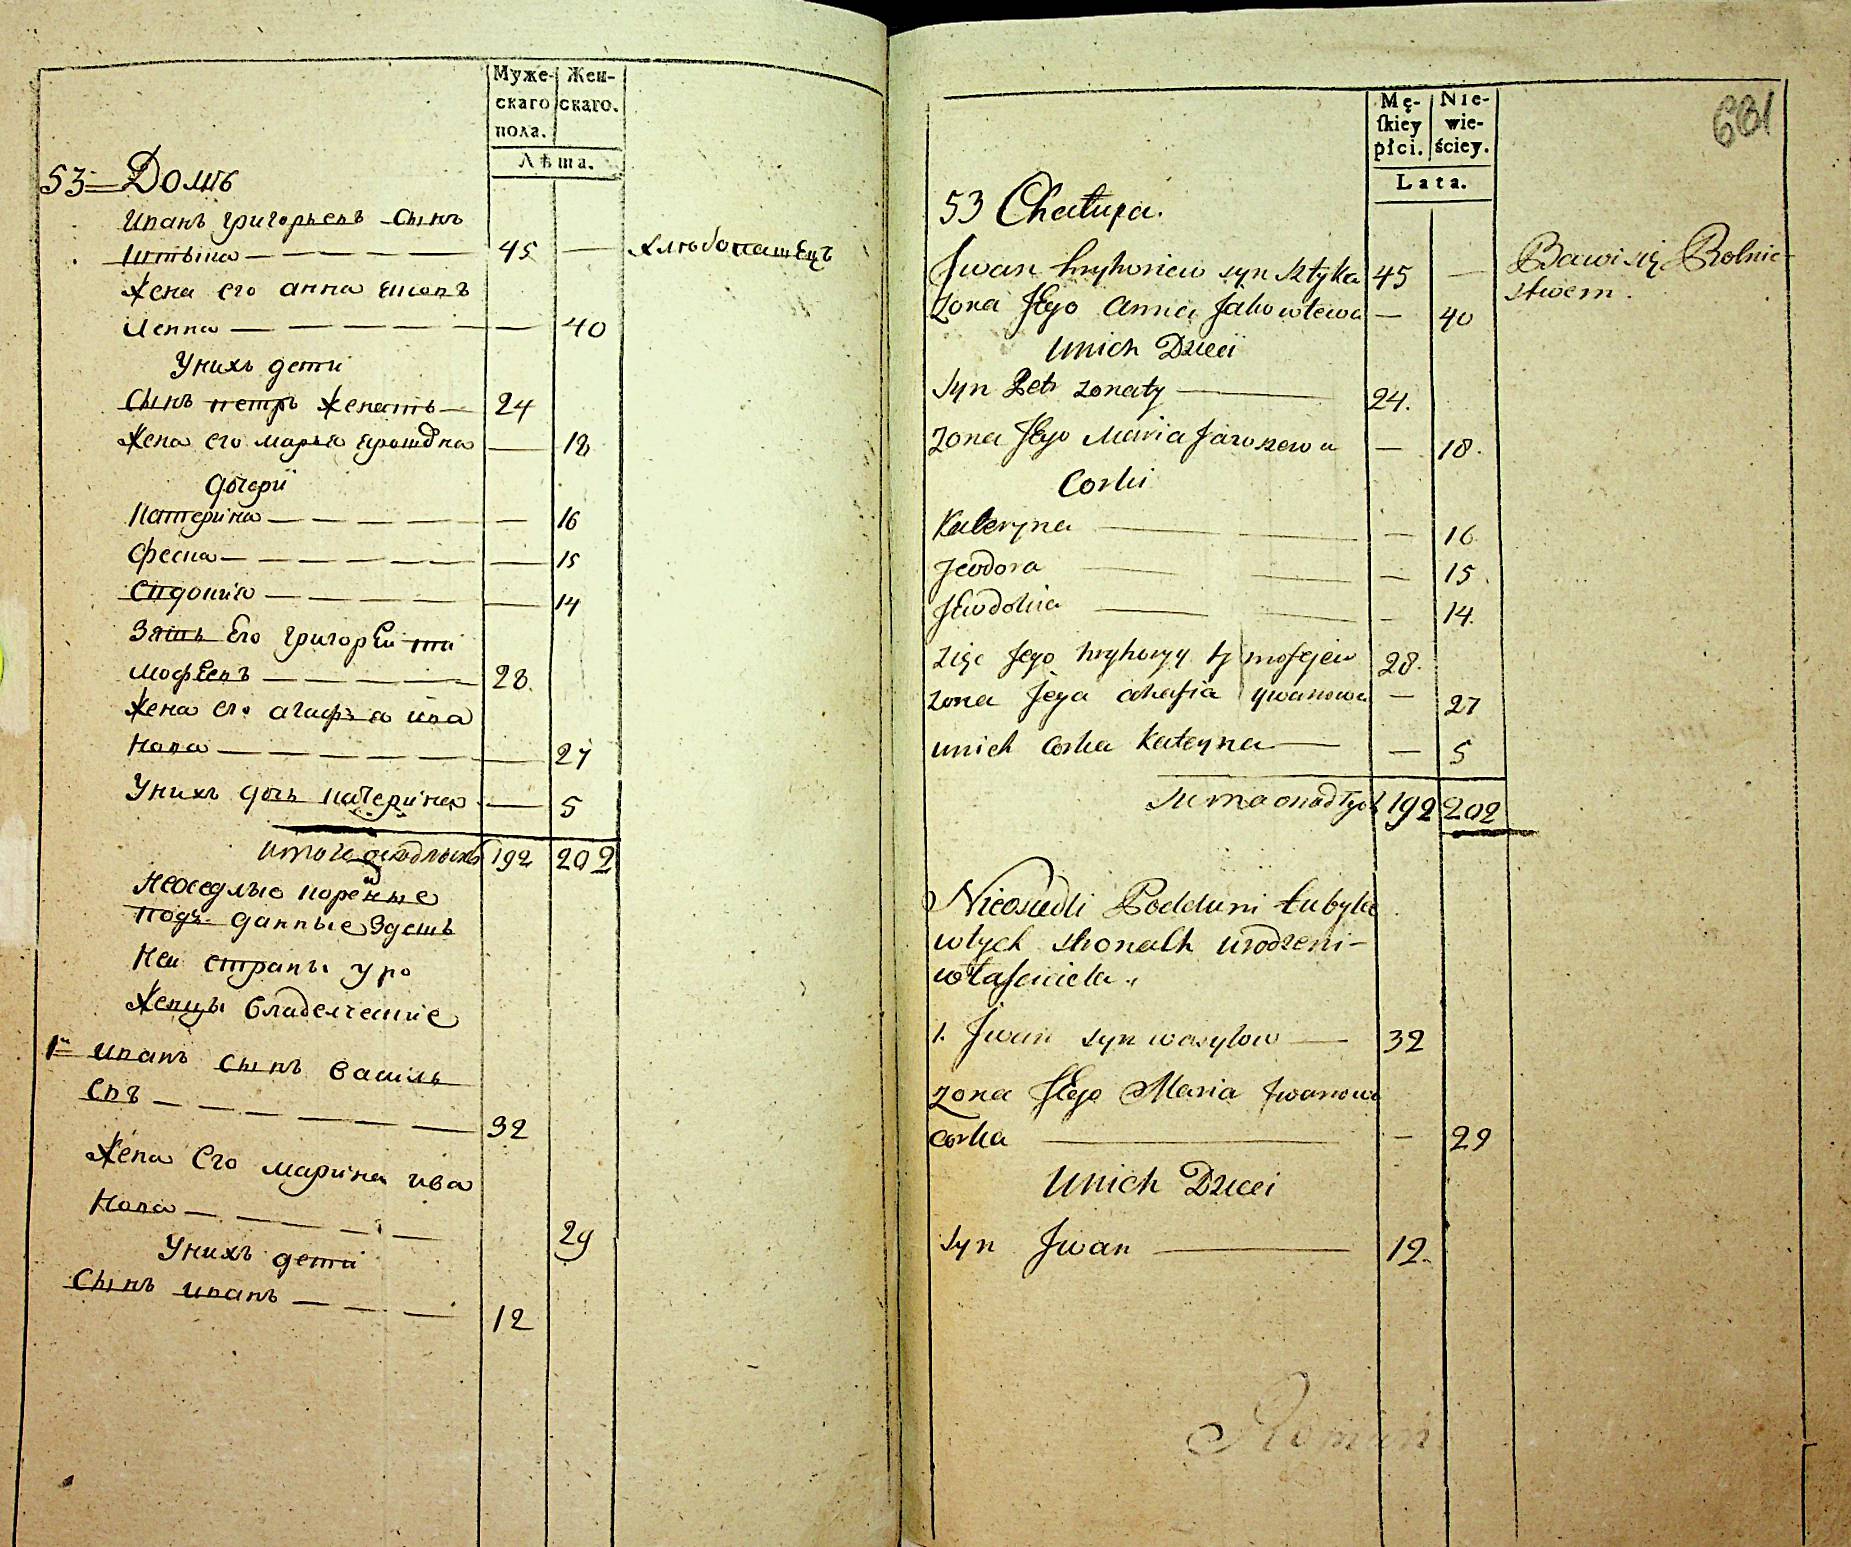 Муже-
скаго
пола.
Жен-
скаго.
Лѣта.
53 = Домъ
Иванъ григорьевъ сынъ
Штыка — 45 — хлѣбопашецъ
Жена его анна яков
левна — 40
Унихъ дети
Сынъ петръ женатъ — 24
Жена его марья — 18
дочери
Катерина — 16
феска — 15
Евдокия — 14
Зять Его григорей ти
мофеевъ — 28.
Жена его агафья ива
нова — 27
Унихъ дочь катерина — 5
итого оседлыхъ 192 202
неоседлыо
подъ данные здеш
ней страны уро
женцы владелческие
1й иванъ сынъ василь
евъ — 32
Жена его марина ива
нова — 29
Унихъ дети
Сынъ иванъ — 12
Mę-
skiey
płci.
Nie-
wie-
ściey.
Lata.
681
53 Chałupa.
Jwan hryhoriew syn Sztyka 45 — Bawi się Rolnic-
stwem.
Zona Jego Anna Jakowlewa — 40
Unich Dzieci
Syn Petr zonaty — 24.
Zona Jego Maria Jaroszewa — 18.
Corki
Kateryna — 16.
Feodora — 15.
Jewdokia — 14.
Zięc Jego hryhorzy tymofejew 28.
zona Jego ahafia ywanowa — 27
unich Corka Kateryna — 5
Summa osiadłych 192 202
Nieosiedli Poddani
wtych stronach urodzeni-
własciciela.
1. Jwan syn wasylow — 32
zona Jego Maria Jwanowa
corka — 29
Unich Dzieci
Syn Jwan — 12.
Roman